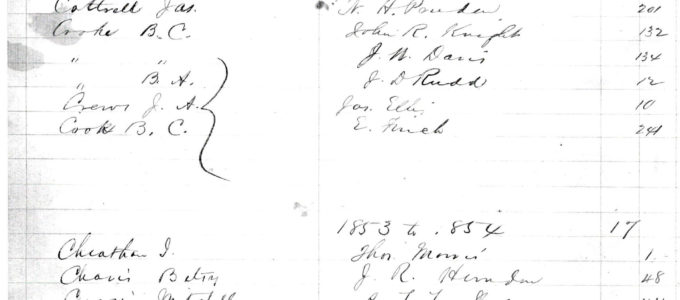 Cottrell Jas. N. H. Pruden 201
Cooke B. C. John R. Knight 132
" " J. W. Davis 134
" B. A. J. D. Rudd 12
Crews J. A. Jas. Ellis 10
Cook B. C. E. Finch 241
1853 to 1854 17
Cheatham I. Thos. Morris 1
Chavis Betsy J. R. Herndon 48